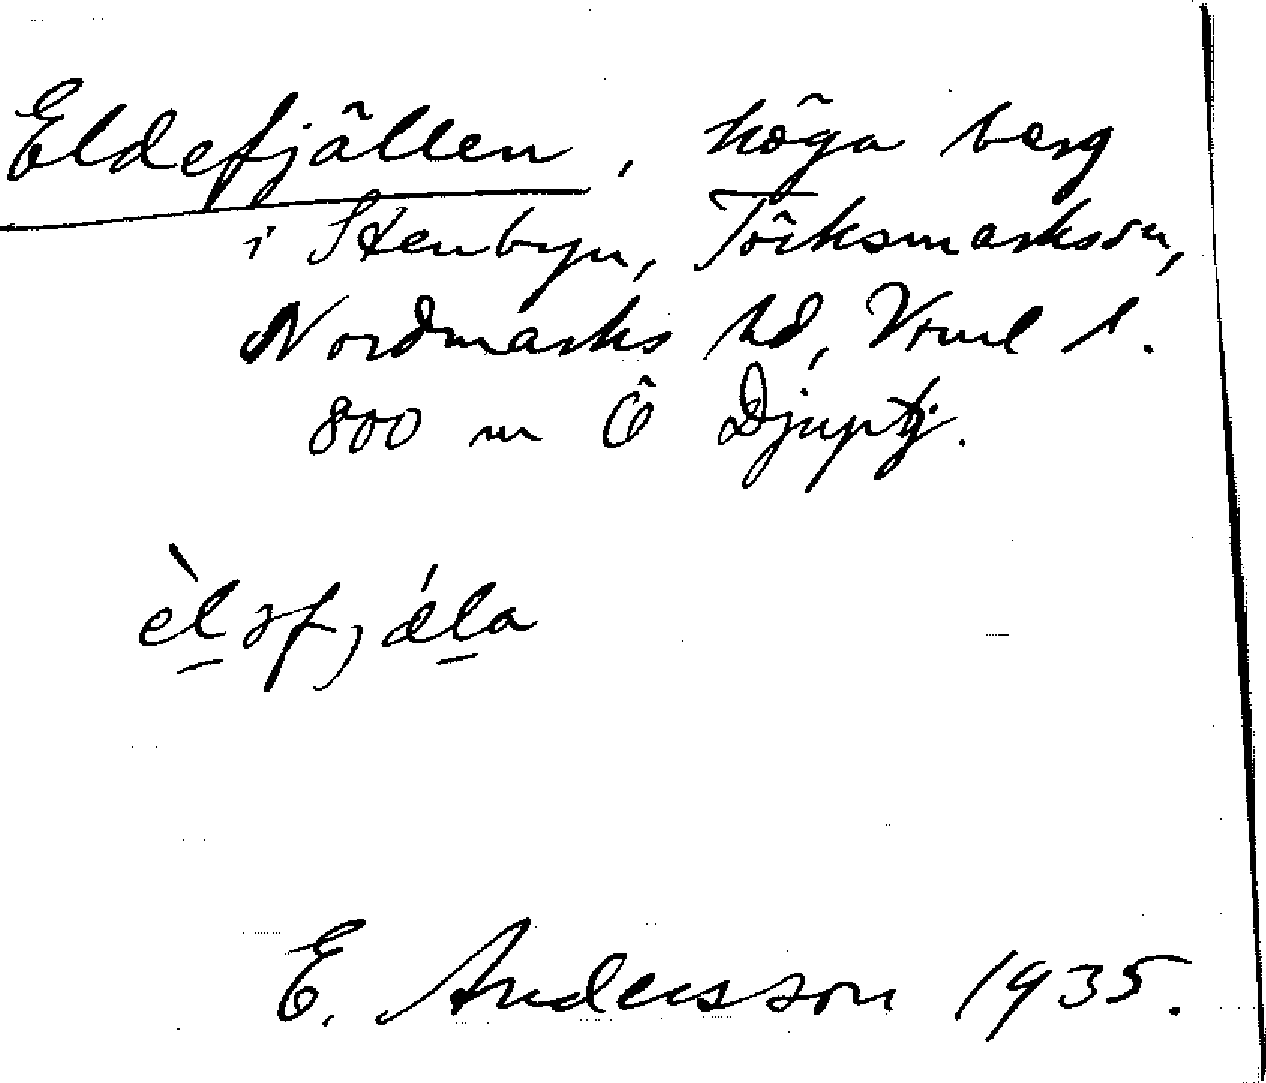 Eldefjällen, höga berg
i Stenbyn, Töcksmarks sn,
Nordmarks hd, Vrml l.
800 m Ö Djuptj.
èləfjála
E. Andersson 1935.